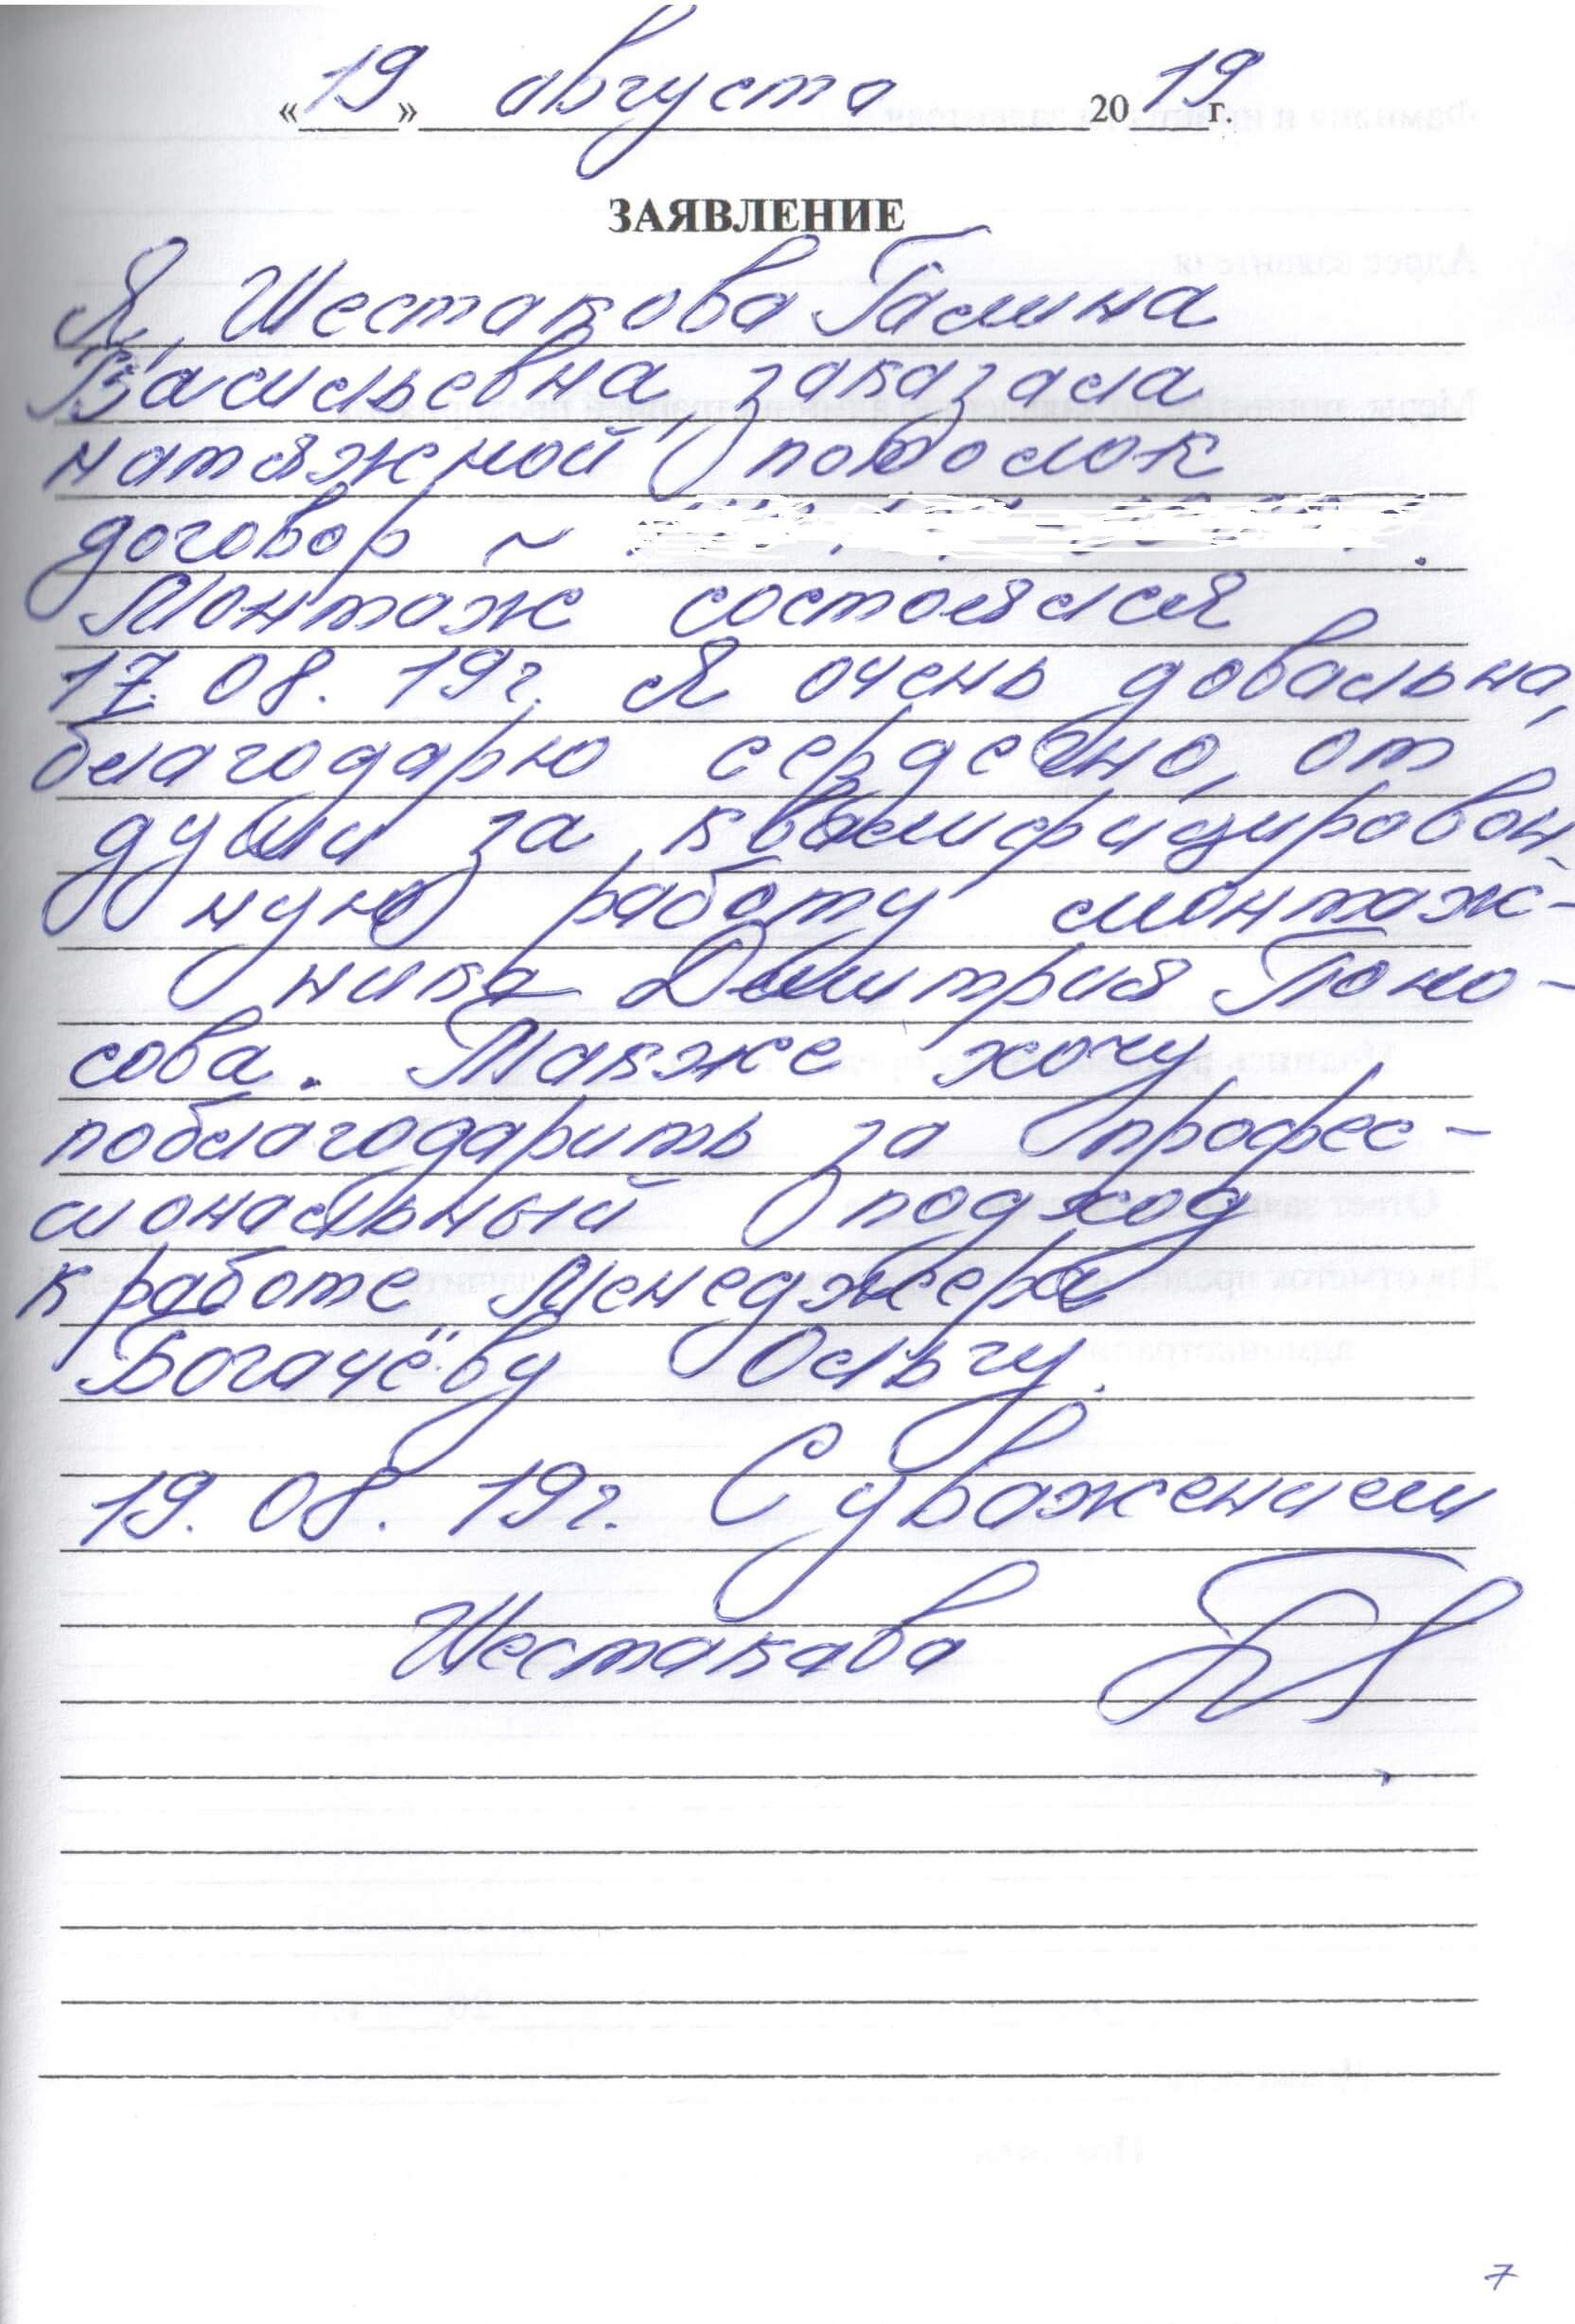 «19» августа 2019 г.
ЗАЯВЛЕНИЕ
Я, Шестакова Галина
Васильевна, заказала
натяжной потолок
договор ~
Монтаж состоялся
17.08.19г. Я очень довольна,
благодарю сердечно, от
души за квалифицирован-
ную работу монтаж-
ника Дмитрия Поно-
сова. Также хочу
поблагодарить за профес-
сиональный подход
к работе Менеджера
Богачёву Ольгу.
19.08.19г. С уважением
Шестакова
7